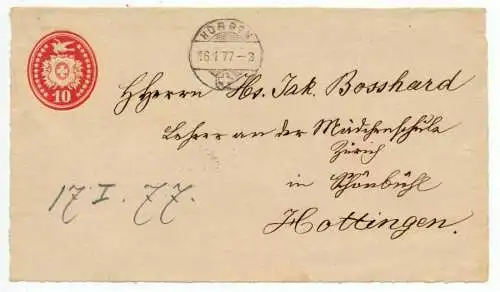 HORGEN
16.I.77-3
10
HHerrn Hs. Jak. Bosshard
Lehrer an der Mädchenschule
Zürich
in Schönbühl
Hottingen.
17.I.77.